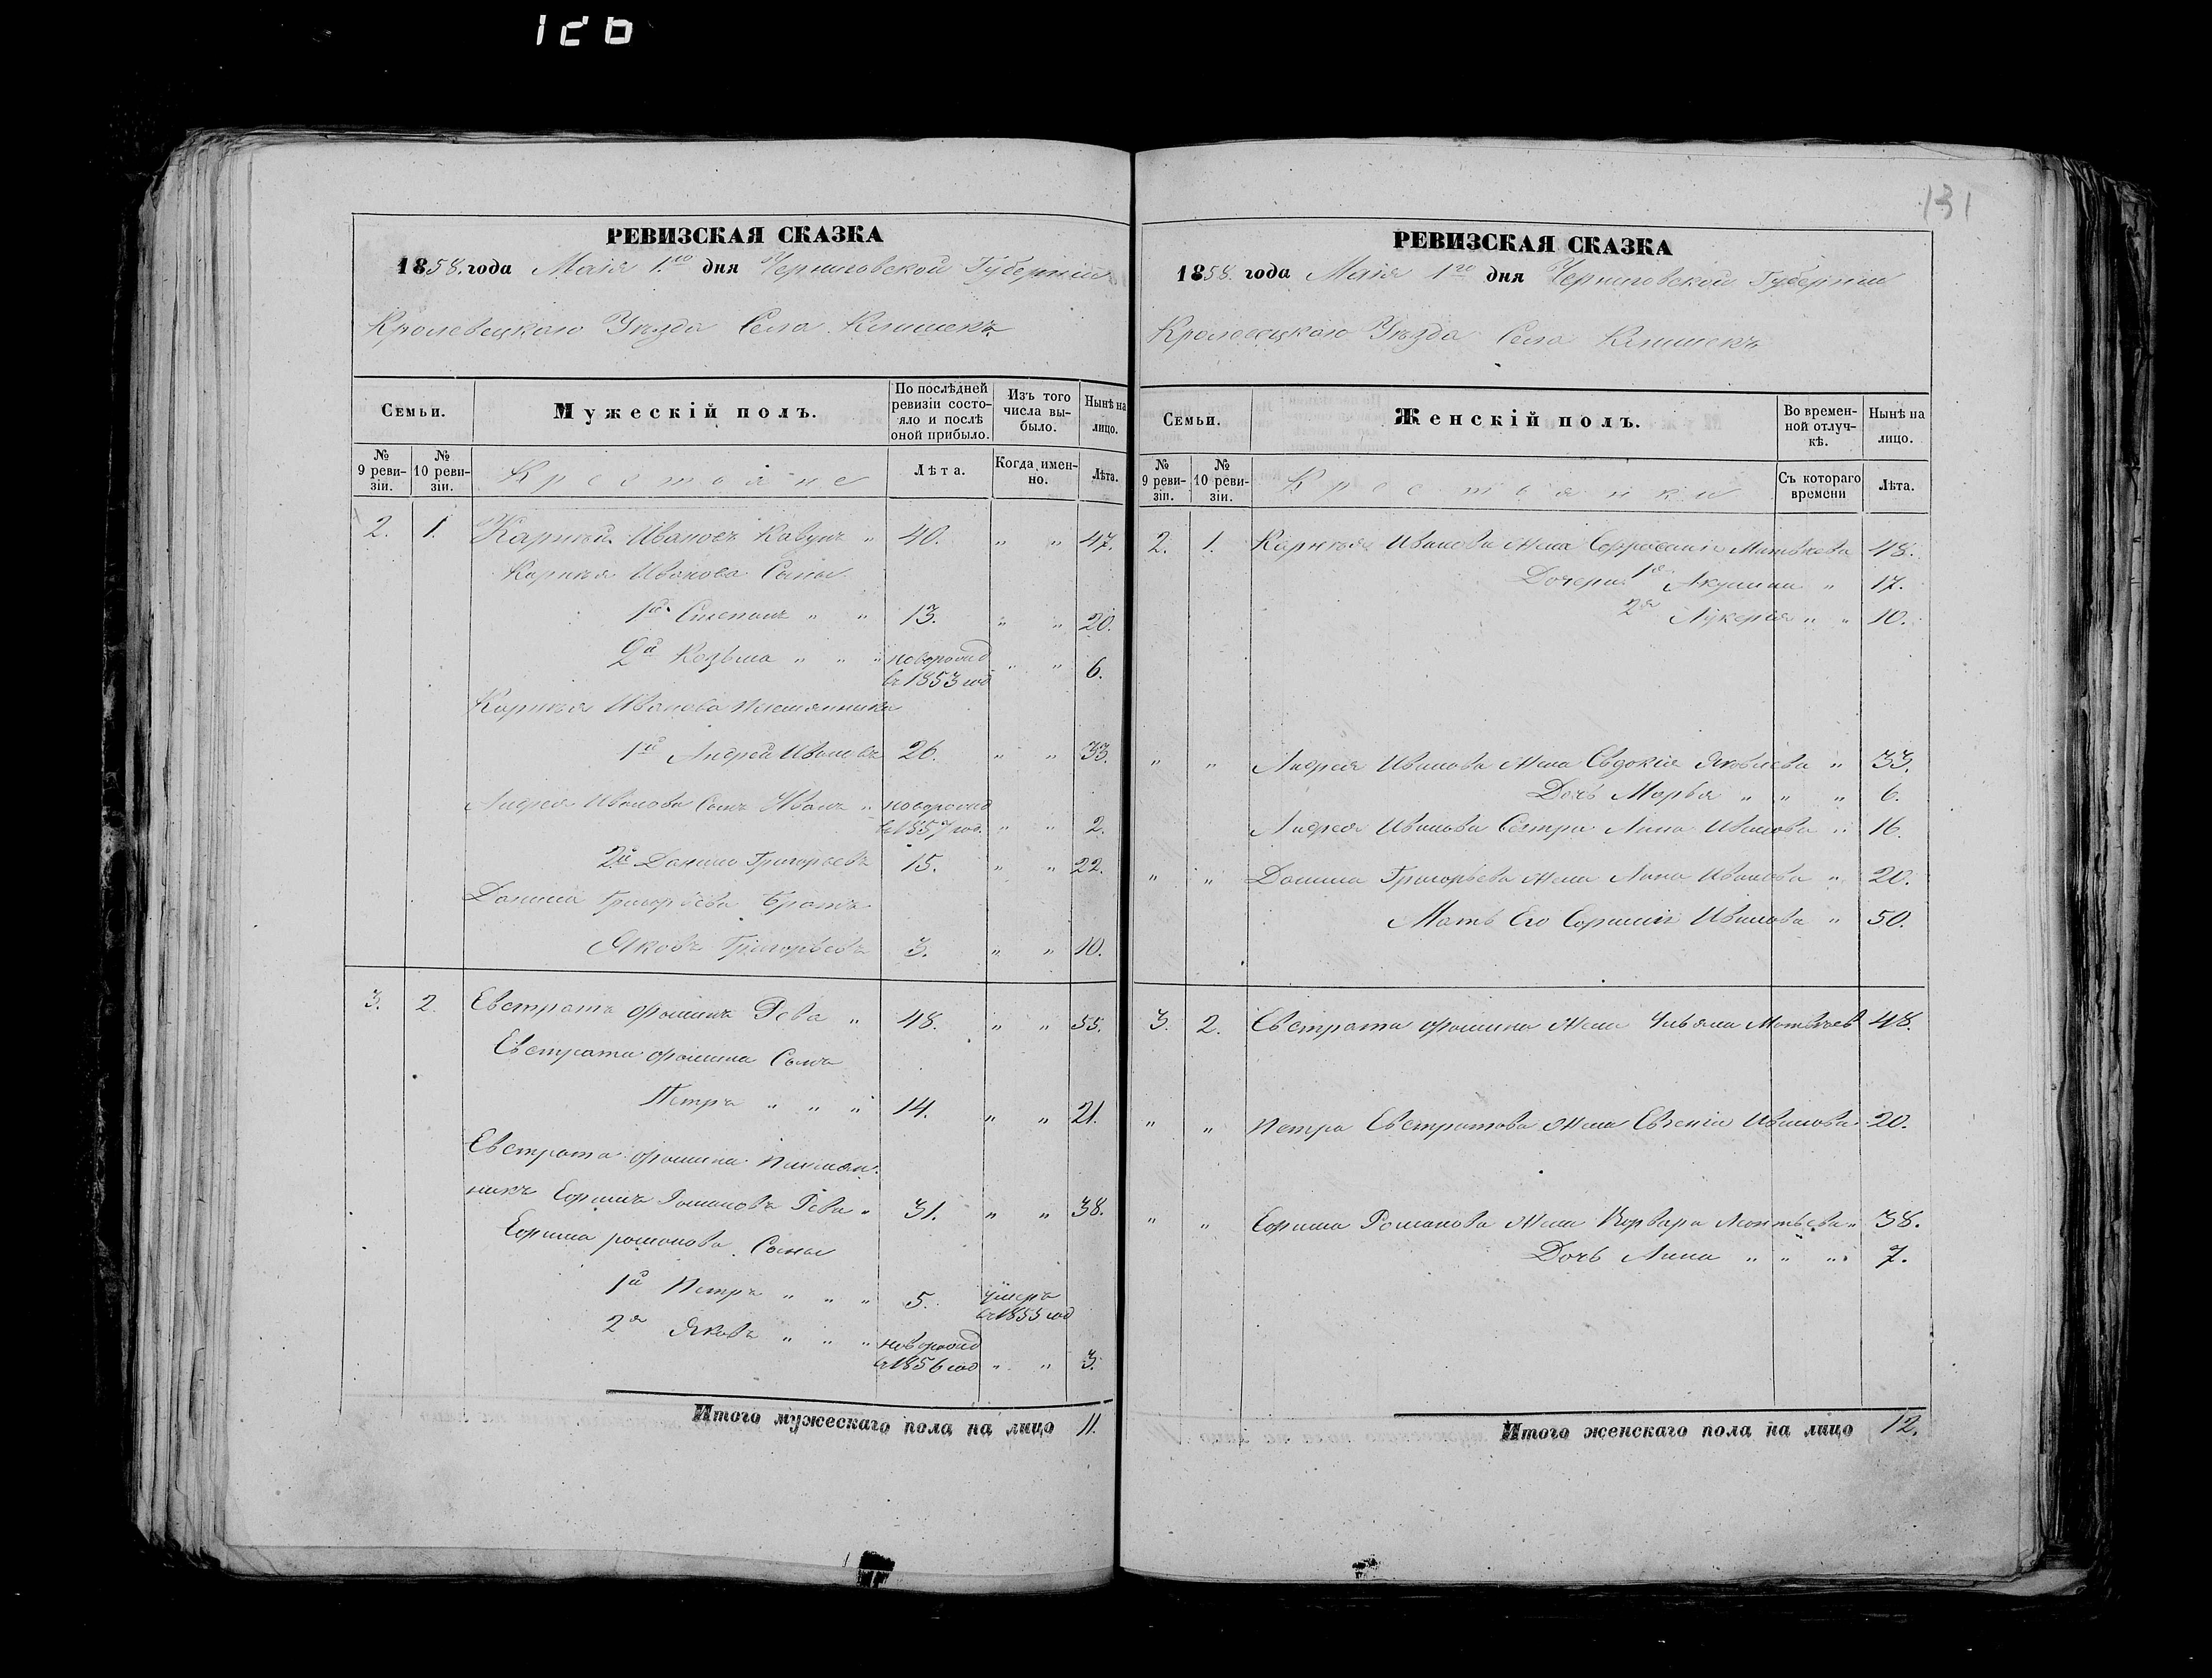 126
РЕВИЗСКАЯ СКАЗКА
1858. года Маія 1го дня Черниговской Губерніи
Кролевецкаго Уѣзда Села Клишекъ
Семьи.
Мужескій полъ.
По послѣдней ревизіи состояло и послѣ оной прибыло.
Изъ того числа выбыло.
Нынѣ на лицо.
№ 9 ревизіи.
№ 10 ревизіи.
Крестьяне
Лѣта.
Когда именно.
Лѣта.
2. 1. Карнѣй Ивановъ Кавунъ " 40. " " 47.
Карнѣя Иванова Сыны
1й Степанъ " " 13. " " 20.
2й Козьма " " " новорожд въ 1853 год " " 6.
Карнѣя Иванова племянники
1й Андрей Ивановъ 26. " " 33.
Андрея Иванова Сынъ Иванъ " новорожд въ 1857 год. " " 2.
2й Данило Григорьевъ 15. " " 22.
Данила Григорьева Братъ
Яковъ Григорьевъ 3. " " 10.
3. 2. Евстратъ Фоминъ Рева " 48. " " 55.
Евстрата Фомина Сынъ
Петръ " " " 14. " " 21.
Евстрата Фомина племян
никъ Ефимъ Романовъ Рева " 31. " " 38.
Ефима романова Сыны
1й Петръ " " " 5. умеръ въ 1853 год
2й Яковъ " " " новорожд въ 1856 год " " 3.
Итого мужескаго пола на лицо 11.
131
РЕВИЗСКАЯ СКАЗКА
1858. года Маія 1го дня Черниговской Губерніи
Кролевецкаго Уѣзда Села Клишекъ
Семьи.
Женскій полъ.
Во временной отлучкѣ.
Нынѣ на лицо.
№ 9 ревизіи.
№ 10 ревизіи.
Крестьянки
Съ котораго времени
Лѣта.
2. 1. Карнѣя Иванова жена Ефросинія Матвѣева 48.
Дочери 1я Акулина " 17.
2я Лукерія " " 10.
" " Андрея Иванова жена Евдокія Яковлева " 33.
Дочь Марья " " " 6.
Андрея Иванова Сестра Анна Иванова " 16.
" " Данила Григорьева жена Анна Иванова " 20.
Мать Его Ефимія Иванова " 50.
3. 2. Евстрата Фомина жена Ульяна Матвѣев 48.
" " Петра Евстратова жена Евгенія Иванова 20.
" " Ефима Романова жена Варвара Леонтьева " 38.
Дочь Анна " " " 7.
Итого женскаго пола на лицо 12.